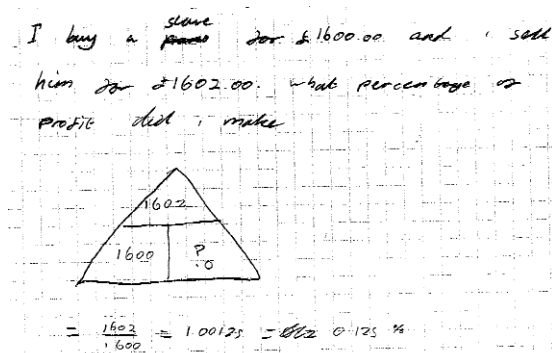 I buy a slave for £1600.00 and i sell
him for £1602.00. what percentage of
profit did i make
1602
1600 ?
.0
= 1602/1600 = 1.00125 = 0.125 %